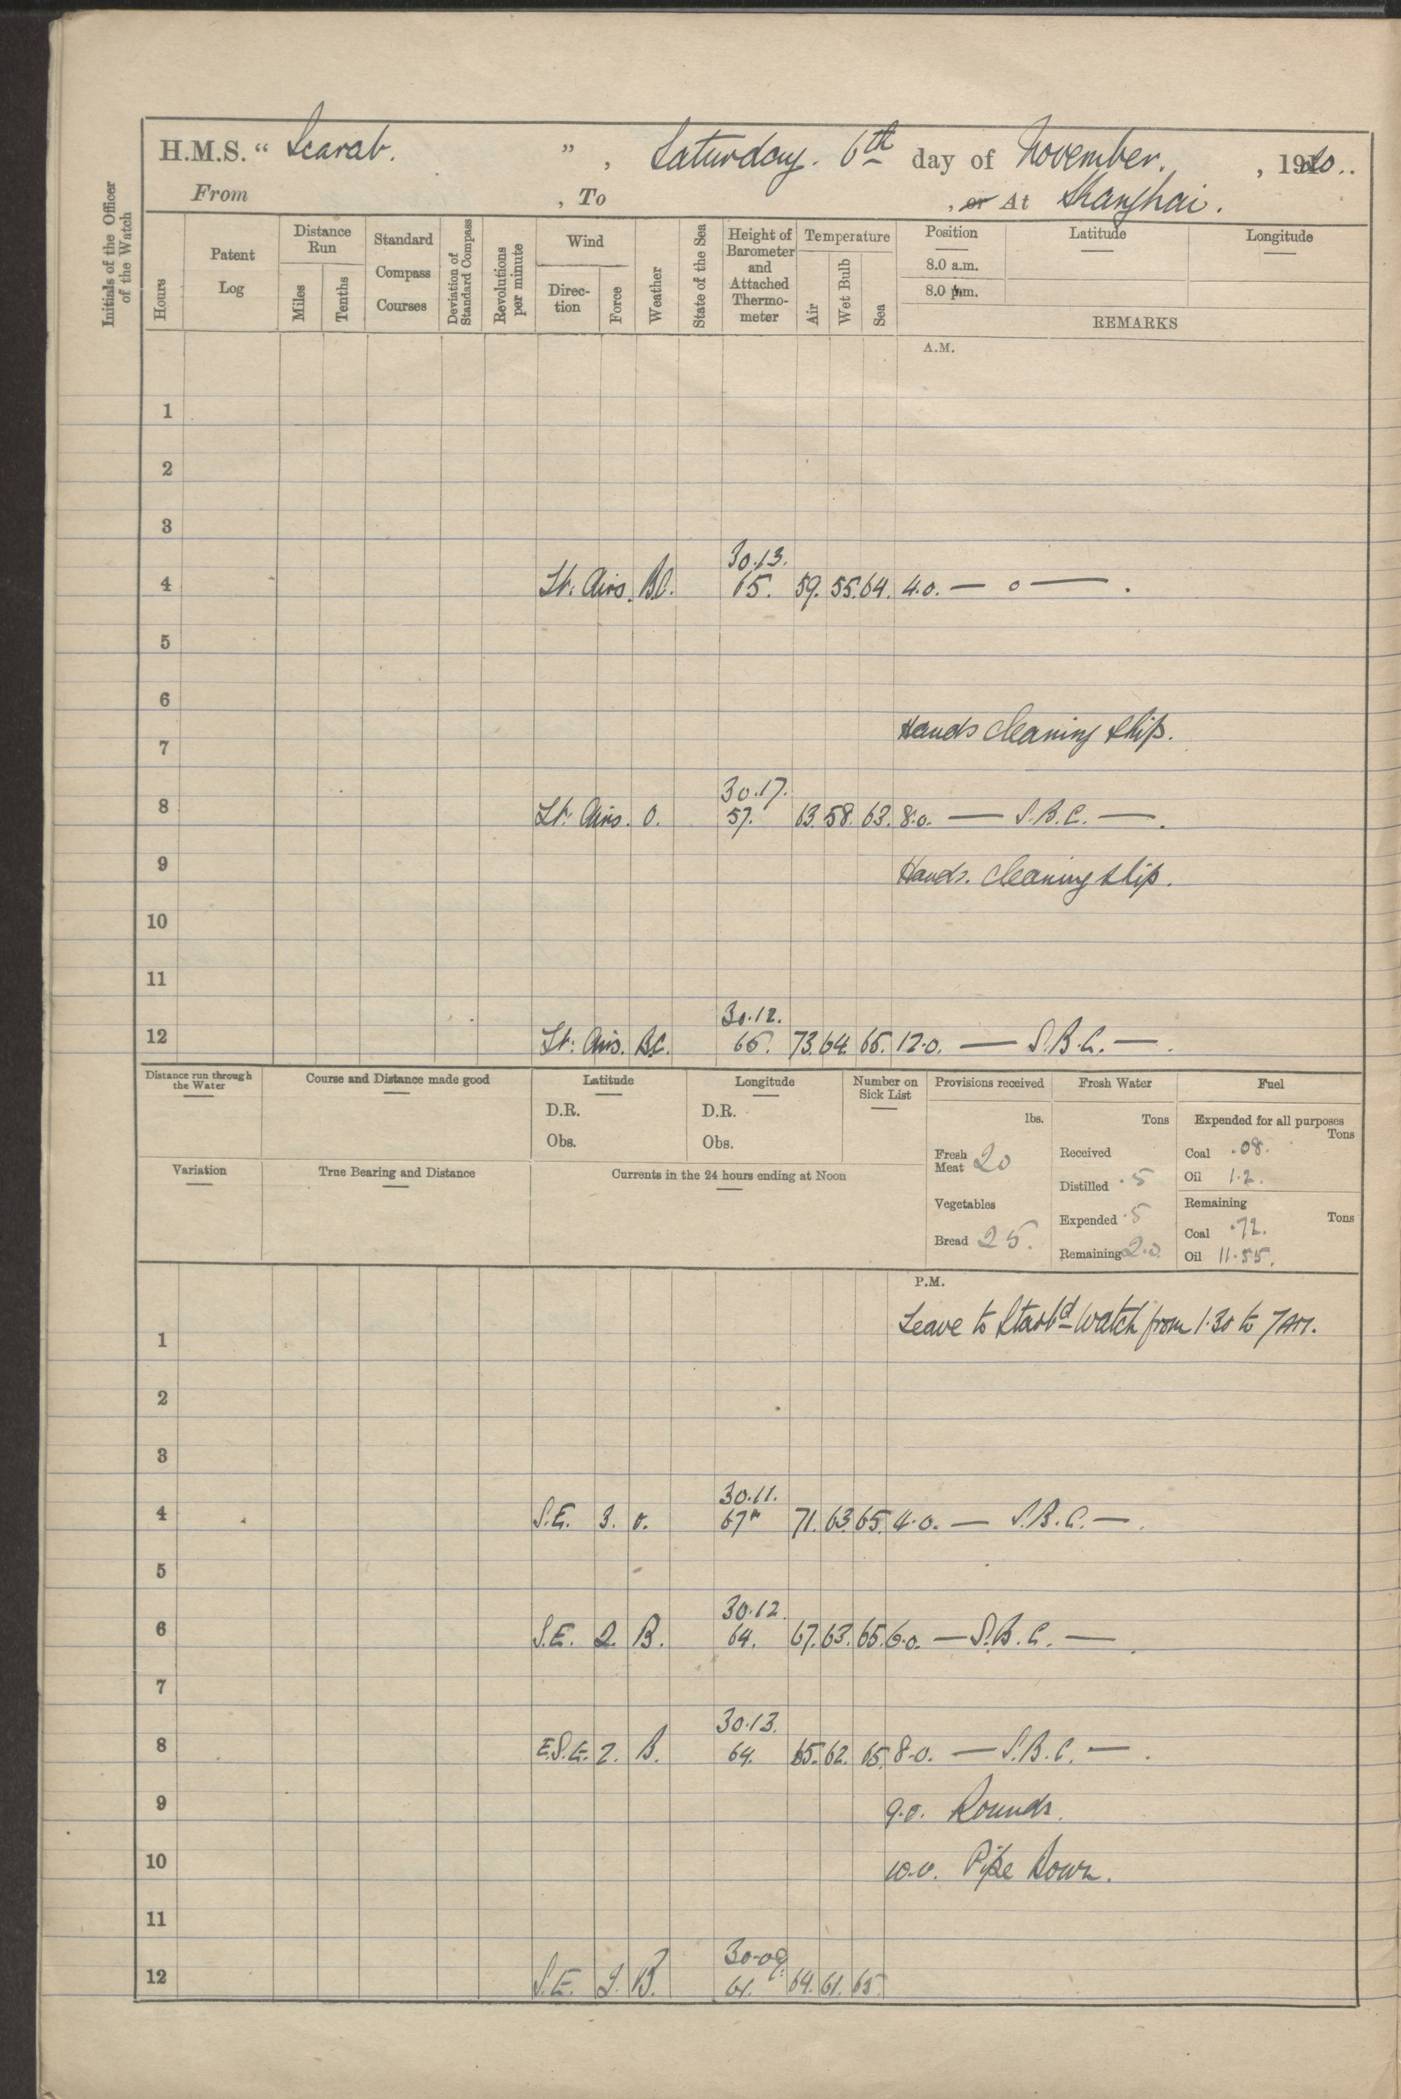 H.M.S. " Scarab. " , Saturday. 6th day of November. , 1920..
From , To , or At Shanghai.
Initials of the Officer of the Watch
Hours
Patent Log
Distance Run
Miles
Tenths
Standard Compass Courses
Deviation of Standard Compass
Revolutions per minute
Wind
Direction
Force
Weather
State of the Sea
Height of Barometer and Attached Thermometer
Temperature
Air
Wet Bulb
Sea
Position
Latitude
Longitude
8.0 a.m.
8.0 p.m.
REMARKS
A.M.
1
2
3
30.13.
4 Lt. Airs. BC. 65. 59. 55. 64. 4.0. — o —
5
6
Hands cleaning ship.
7
30.17.
8 Lt. Airs. O. 57. 63. 58. 63. 8.0. — S.B.C. — .
9 Hands. cleaning ship.
10
11
30.12.
12 Lt. Airs. B.C. 66. 73. 64. 65. 12.0. — S.B.C. — .
Distance run through the Water
Course and Distance made good
Latitude
D.R.
Obs.
Longitude
D.R.
Obs.
Number on Sick List
Variation
True Bearing and Distance
Currents in the 24 hours ending at Noon
Provisions received
lbs.
Fresh Meat 20
Vegetables
Bread 25.
Fresh Water
Tons
Received
Distilled .5
Expended .5
Remaining 2.0
Fuel
Expended for all purposes
Tons
Coal .08.
Oil 1.2.
Remaining
Tons
Coal .72.
Oil 11.55.
P.M.
1 Leave to Starbd Watch from 1.30 to 7 AM.
2
3
30.11.
4 S.E. 3. o. 67 71. 63. 65. 4.0. — S.B.C. — .
5
30.12.
6 S.E. 2. B. 64. 67. 63. 65. 6.0. — S.B.C. — .
7
30.13.
8 E.S.E. 2. B. 64. 65. 62. 65. 8.0. — S.B.C. — .
9 9.0. Rounds.
10 10.0. Pipe Down.
11
30.09.
12 S.E. 2. B. 61. 64. 61. 65.